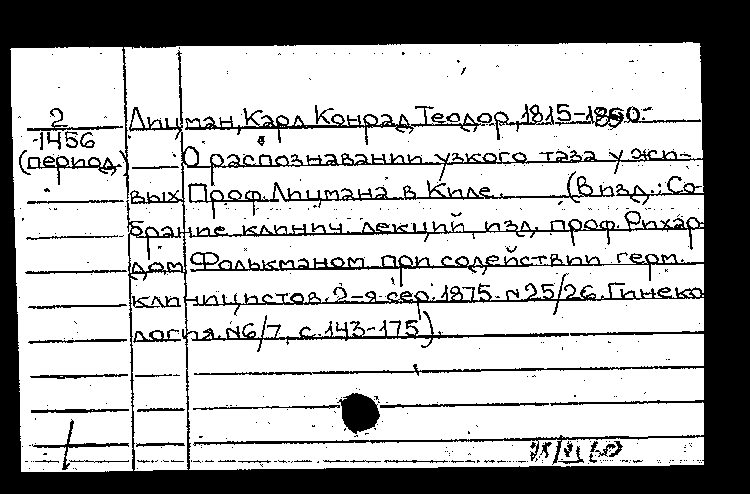 2
1456
(период.)
Лицман, Карл Конрад Теодор, 1815-1890.-
О распознавании узкого таза у жи-
вых Проф. Лицмана в Киле. (В изд.: Со-
брание клинич. лекций, изд. проф. Рихар-
дом Фолькманом при содействии герм.
клиницистов. 2-я сер. 1875. N25/26. Гинеко-
логия. N6/7, с. 143-175).